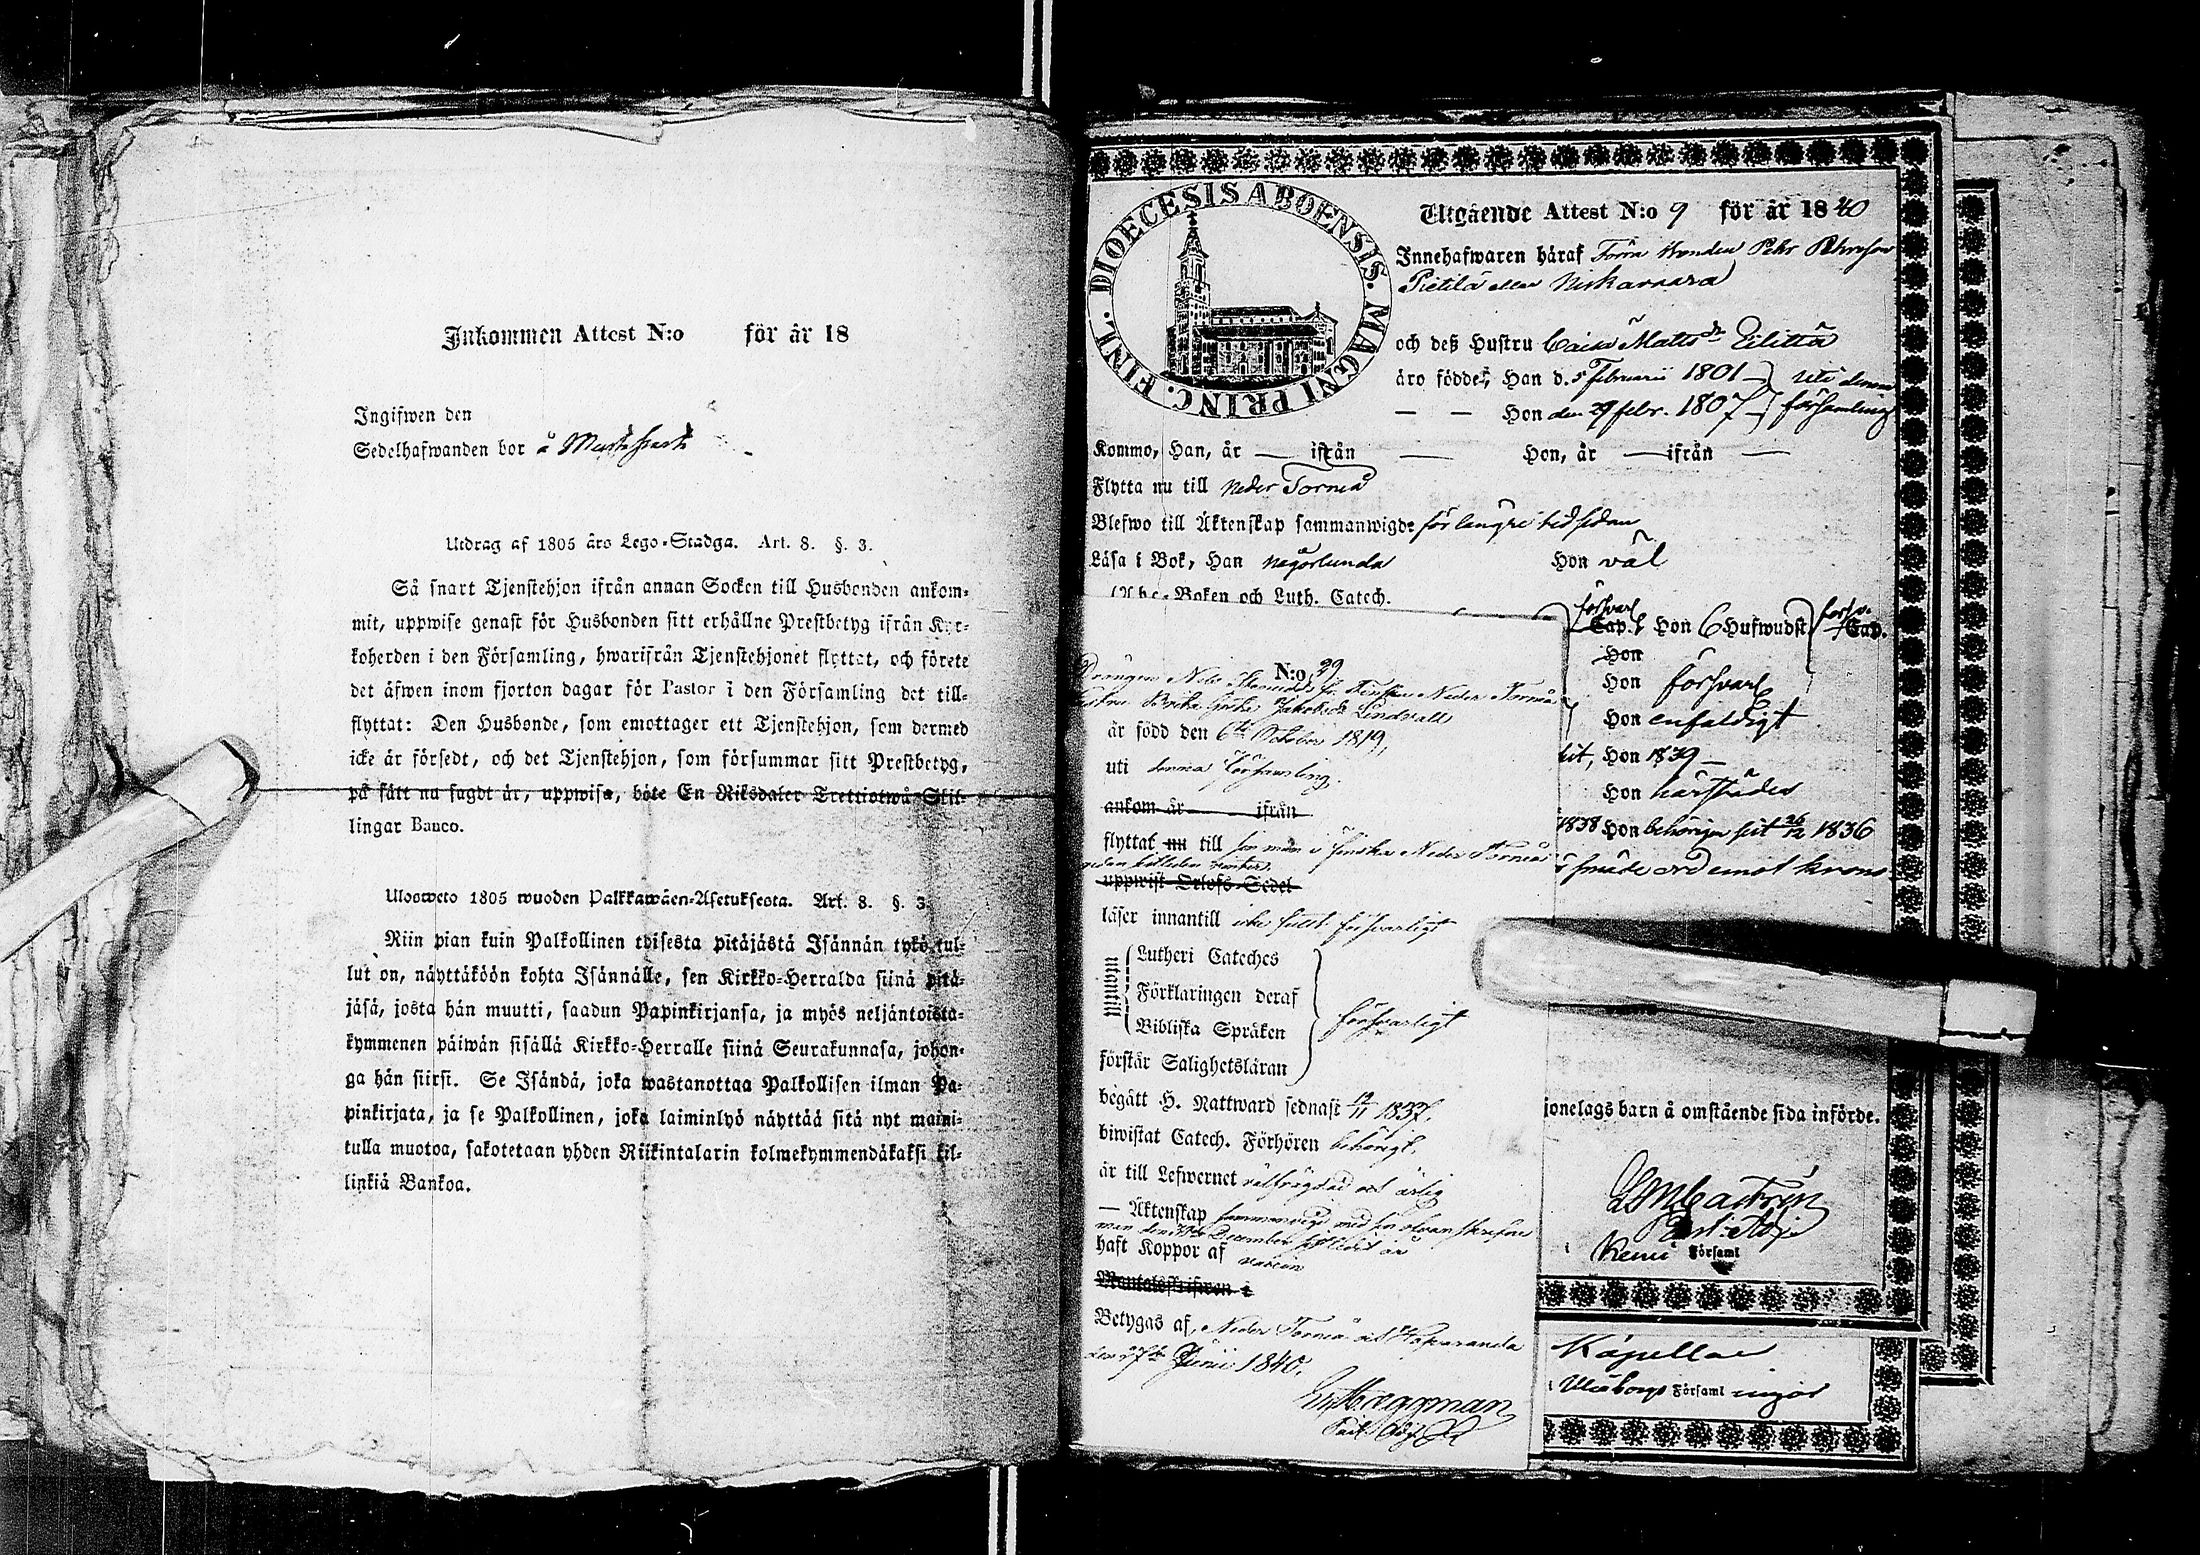 Inkommen Attest N:o för år 18
Ingifwen den
Sedelhafwanden bor å
Utdrag af 1805 års Lego-Stadga. Art. 8. §. 3.
Så snart Tjenstehjon ifrån annan Socken till Husbonden ankom-
mit, uppwise genast för Husbonden sitt erhållne Prestbetyg ifrån Kyr-
koherden i den Församling, hwarifrån Tjenstehjonet flyttat, och förete
det äfwen inom fjorton dagar för Pastor i den Församling det till-
flyttat: Den Husbonde, som emottager ett Tjenstehjon, som dermed
icke är försedt, och det Tjenstehjon, som försummar sitt Prestbetyg,
på sätt nu sagdt är, uppwisa, böte En Riksdaler Trettiotwå Skil-
lingar Banco.
Ulosweto 1805 wuoden Palkkawäen-Asetuksesta. Art. 8. §. 3.
Niin pian kuin Palkollinen toisesta pitäjästä Isännän tykö tul-
lut on, näyttäköön kohta Isännälle, sen Kirkko-Herralda siinä pitä-
jäsä, josta hän muutti, saadun Papinkirjansa, ja myös neljäntoista-
kymmenen päiwän sisällä Kirkko-Herralle siinä Seurakunnasa, johon-
ga hän siirsi. Se Isändä, joka wastanottaa Palkollisen ilman Pa-
pinkirjata, ja se Palkollinen, joka laiminlyö näyttää sitä nyt maini-
tulla muotoa, sakotetaan yhden Riikintalarin kolmekymmendäkaksi kil-
linkiä Bankoa.
DIOECESIS ABOENSIS. MAGNI PRINC. FINL.
Utgående Attest N:o 9 för år 1840
Innehafwaren häraf Förra Bonden Petr Petersson
Pietilä eller Niskavaara
och deß Hustru Caisa Matts dr Eilittä
äro födde, Han d. 5 Februarii 1801 uti denna
— — Hon den 29 febr. 1807 församling
Kommo, Han, år — ifrån — Hon, år — ifrån —
Flytta nu till Neder Torneå
Blefwo till Äktenskap sammanwigde för längre tid sedan
Läsa i Bok, Han någorlunda Hon väl
Abc-Boken och Luth. Catech.
försvarl. Cap. Hon 6 Hufwudst. försv. Cap.
Hon
Hon försvarl
Hon enfaldigt
sit, Hon 1839 —
Hon härstädes
1838 Hon behörigen sit 26/12 1836
jonelags barn å omstående sida införde.
Castrén
Kemi Församl
Kapellan
i Uleåborgs Församl ingår
N:o 29
Drängen Nils i Finska Neder Torneå
Hustru Brita Greta Jakobsdr Lindvall
är född den 6te October 1819,
uti denna Församling.
ankom år ifrån
flyttat nu till sin man i Finska Neder Torneå
uppwist Orlofs-Sedel
läser innantill icke fullt försvarligt
utantill
Lutheri Cateches
Förklaringen deraf
Bibliska Språken
försvarligt
förstår Salighetsläran
begått H. Nattward sednast 12/11 1837.
biwistat Catech. Förhören behörigt.
är till Lefwernet välfrägdad och ärlig
— Äktenskap sammanvigd med sin ofvanskrefne
man den December sistledit år
haft Koppor af vaccin
Mantalsskrifwen i
Betygas af, Neder Torneå och Haparanda
den 27de Junii 1840.
Häggman